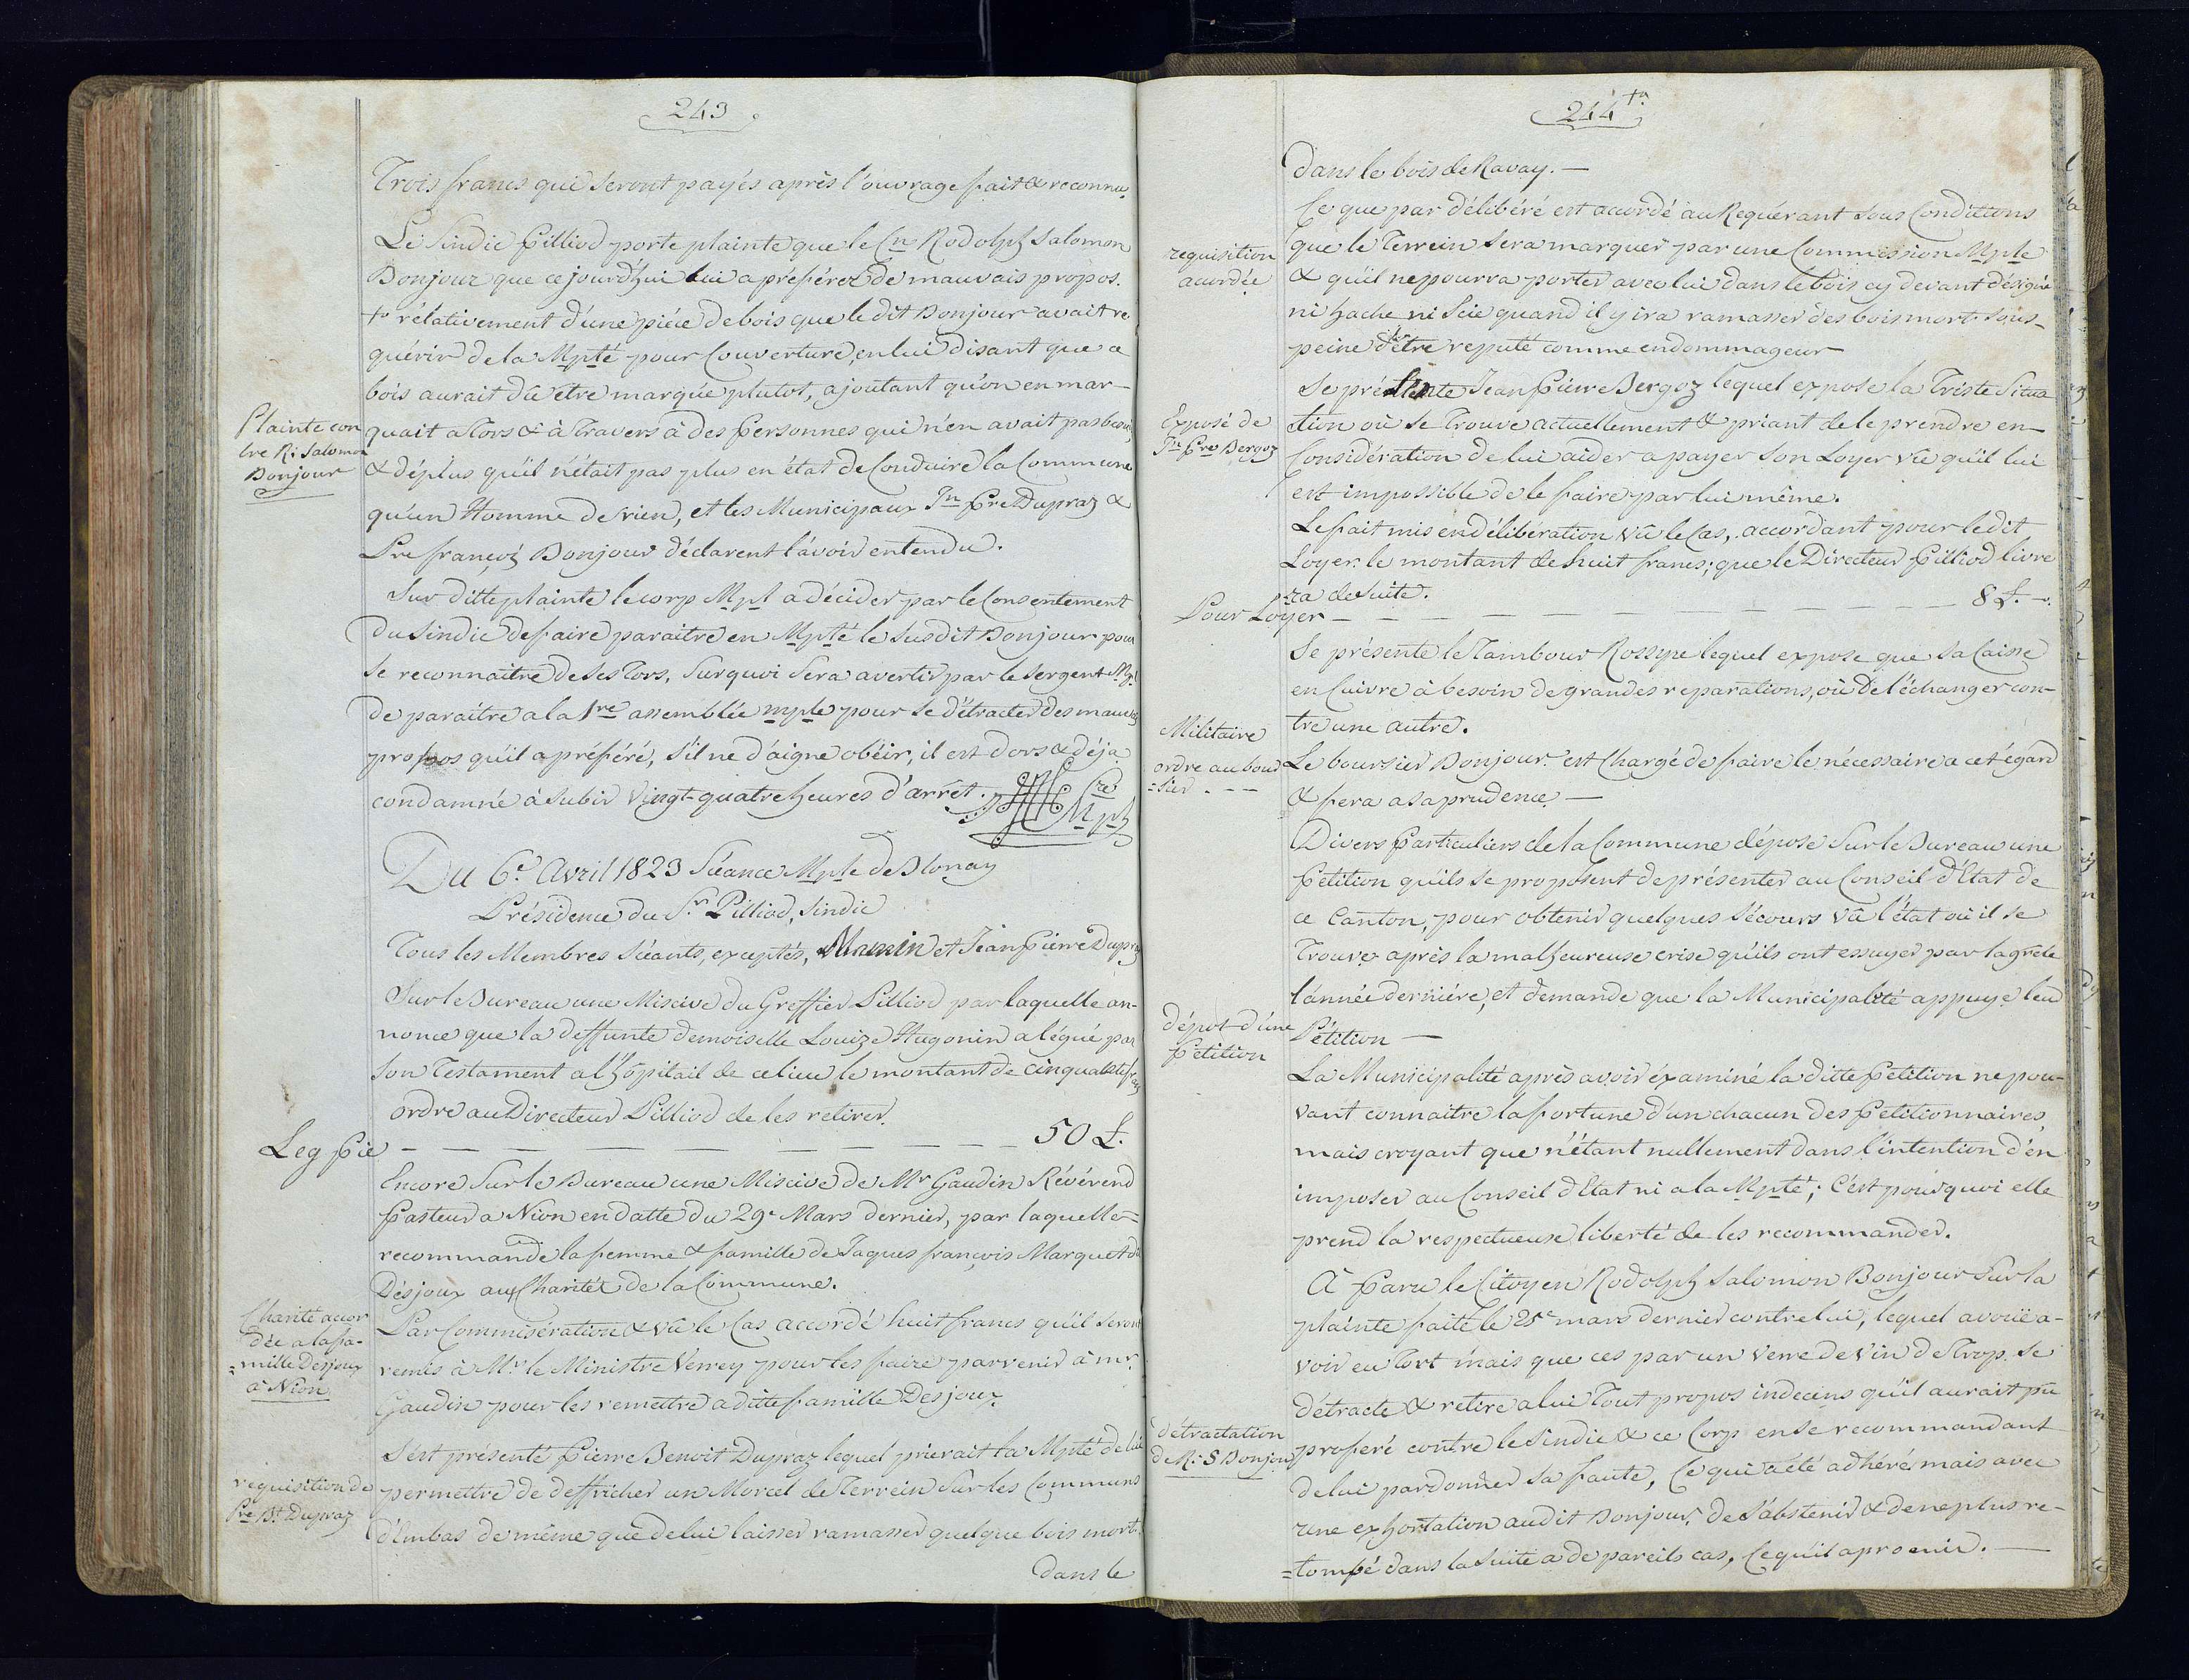 243
Trois francs qui Seront payés après l'ouvrage fait & reconnu.
Le Sindic Pilliod porte plainte que le Cn Rodolph Salomon
Bonjour que cejourd'hui lui a préférez de mauvais propos.
rélativement d'une piéce de bois que le dit Bonjour avait re
quérir de la Mpté pour Couverture, en lui disant que ce
bois aurait dû être marquée plutot, ajoutant qu'on en mar-
Plainte con
tre R: Salomon
Bonjour
quait a Tors & à Travers à des Personnes qui n'en avait pas besoin,
& déplus qu'il n'était pas plus en état de Conduire la Commune
qu'un Homme de rien, et les Municipaux Jn Pre Dupraz &
Pre françois Bonjour déclarent l'avoir entendu.
Sur ditte plainte le corp Mpl a décider par le Consentement
du Sindic de faire paraitre en Mpté le Susdit Bonjour pour
se reconnaitre de Ses Tors, Surquoi Sera avertir par le Sergent Mpl
de paraître a la 1re assemblée mple pour Se détracter des mauvais
propos qu'il a préféré, s'il ne d'aigne obéir, il est d'ors & déja
condamné à Subir Vingt-quatre heures d'arrêt.
Du 6e. Avril 1823 Séance Mple de Blonay
Présidence du Sr. Pilliod, Sindic
Tous les Membres Séants, exceptés, Mamin et Jean Pierre Dupraz
Sur le Bureau une Miscive du Greffier Pilliod par laquelle an-
nonce que la deffunte demoiselle Louize Hugonin a légué par
Son Testament a l'hôpitail de ce lieu le montant de cinquante
ordre au Directeur Pilliod de les retirer.
Leg Pie — — — — — — — — 50 £.
Encore Sur le Bureau une Miscive de Mr Gaudin Révérend
Pasteur a Nion en datte du 29e Mars dernier, par laquelle=
recommande la femme & famille de Jaques françois Marquet d
Désjoux aux Charitéz de la Commune.
Charité accor
dée a la fa-
=mille Desjoux
à Nion
Par Commisération & vû le Cas accordé huit francs qu'il Seront
remis à Mr. le Ministre Verrey pour les faire parvenir à mr.
Gaudin pour les remettre a ditte famille Desjoux
S'est présenté Pierre Benoit Dupraz lequel prierait la Mpté de lui
requisition de
Pre Bt Dupraz
permettre de deffricher un Morcel de Terrein Sur les Communs
d'Embas de même que de lui laisser ramasser quelque bois mort.
dans le
244
dans le bois de Ravay. —
Ce que par délibéré est accordé au Requérant sous Conditions
requisition
acordée
que le Terrein Sera marquer par une Commission Mple
& qu'il ne pourra porter avec lui dans le bois cy devant désigné
ni hache ni Scie quand il y ira ramasser des bois mort. sous-
peine d'être reputé comme endommageur
Se présente Jean Pierre Bergoz lequel expose la Triste Situa
Exposé de
Jn Pre Bergoz
tion où se Trouve actuellement & priant de le prendre en-
Considération de lui aider a payer Son Loyer vû qu'il lui
est impossible de le faire par lui même.
Le fait mis en délibération vû le Cas, accordant pour le dit
Loyer. le montant de huit francs; que le Directeur Pilliod livre
ra de Suite.
Pour Loyer — — — — — — — — 8 £. —.
Se présente le Tambour Rossyre lequel expose que Sa Caisse
en Cuivre à besoin de grandes reparations, où de l'échanger con-
tre une autre.
Militaire
ordre au bour
=sier. - - -
Le boursier Bonjour. est Chargé de faire le nécessaire a cet égard
& fera a sa prudence —
Divers Particuliers de la Commune dépose Sur le Bureau une
Pétition qu'ils se proposent de présenter au Conseil d'Etat de
ce Canton, pour obtenir quelques Sécours vû l'état où il se
Trouve après la malheureuse crise qu'ils ont essuyer par la grêle
l'année derniére, et demande que la Municipalité appuye leur
dépot d'une
Petition
Pétition —
La Municipalité après avoir éxaminé la ditte Pétition ne pou-
vant connaitre la fortune d'un chacun des Petitionnaires,
mais croyant que n'étant nullement dans l'intention d'en
imposer au Conseil d'Etat ni a la Mpté; C'est pourquoi elle
prend la respectueuse liberté de les recommander.
A Paru le Citoyen Rodolph Salomon Bonjour Sur la
plainte faite le 25e mars dernier contre lui, lequel avouë a-
voir eu Tort mais que ces par un Verre de Vin de Trop. Se
détracte & retire a lui Tout propos indecens qu'il aurait pû
détractation
de R: S Bonjour
proferé contre le Sindic & ce Corp en Se recommandant
de lui pardonner Sa faute, Ce qui a été adhéré mais avec
une exhortation au dit Bonjour. de S'abstenir & de ne plus re-
=tompé dans la Suite a de pareils cas, Ce qu'il a promis. —